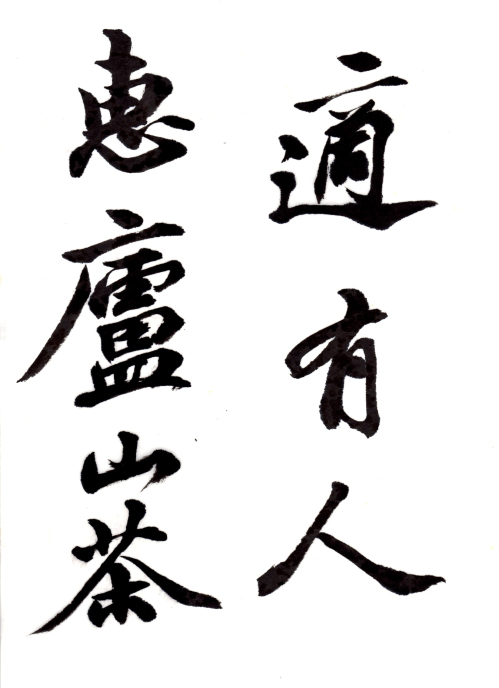 適有人
惠廬山茶